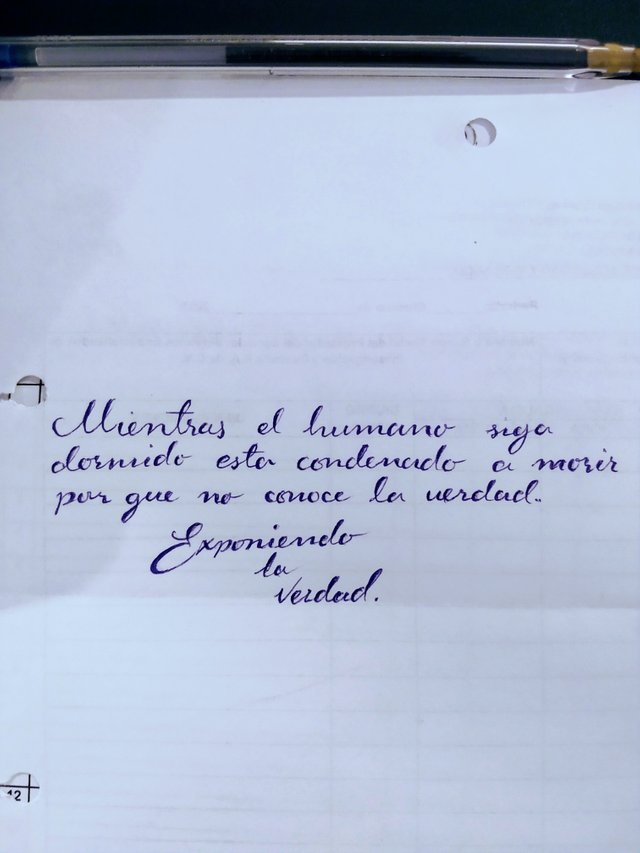 Mientras el humano siga
dormido esta condenado a morir
por que no conoce la verdad.
Exponiendo
la
verdad.
12